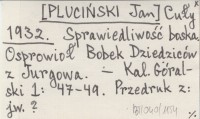 [PLUCIŃSKI Jan] Cuły
1932. Sprawiedliwość boska.
Osprowioł Bobek Dziedziców
z Jurgowa. — Kal. Góral-
ski 1: 47-49. Przedruk z:
jw. ?